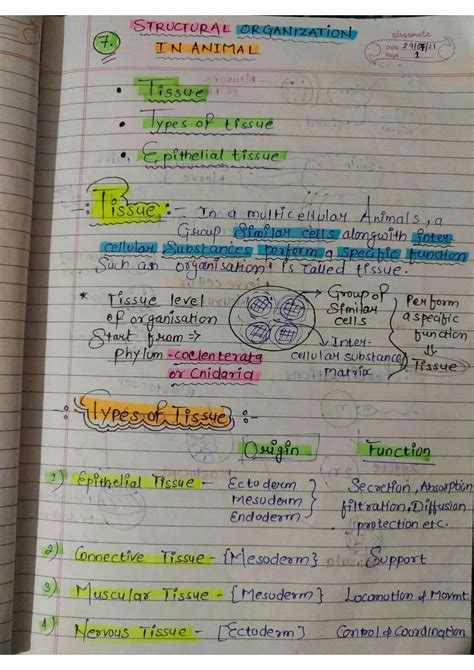 7.
STRUCTURAL ORGANIZATION
IN ANIMAL
classmate
Date
Page 1
• Tissue
• Types of tissue
• Epithelial tissue
Tissue :- In a multicellular Animals, a
Group Similar cells alongwith inter
cellular Substances perform a specific function
Such an organisation is called tissue.
* Tissue level
of organisation
Start from ⇒
phylum - coelenterata
or Cnidaria
Group of
Similar
cells
Inter-
cellular substance
Matrix
Perform
a specific
function
⇓
Tissue
Types of Tissue
Origin Function
1) Epithelial Tissue - Ectoderm
Mesoderm
Endoderm
Secretion, Absorption
filtration, Diffusion
protection etc.
2) Connective Tissue - [Mesoderm} Support
3) Muscular Tissue - [Mesoderm} Locomotion & Movmt.
4) Nervous Tissue - [Ectoderm] Control & Coordination